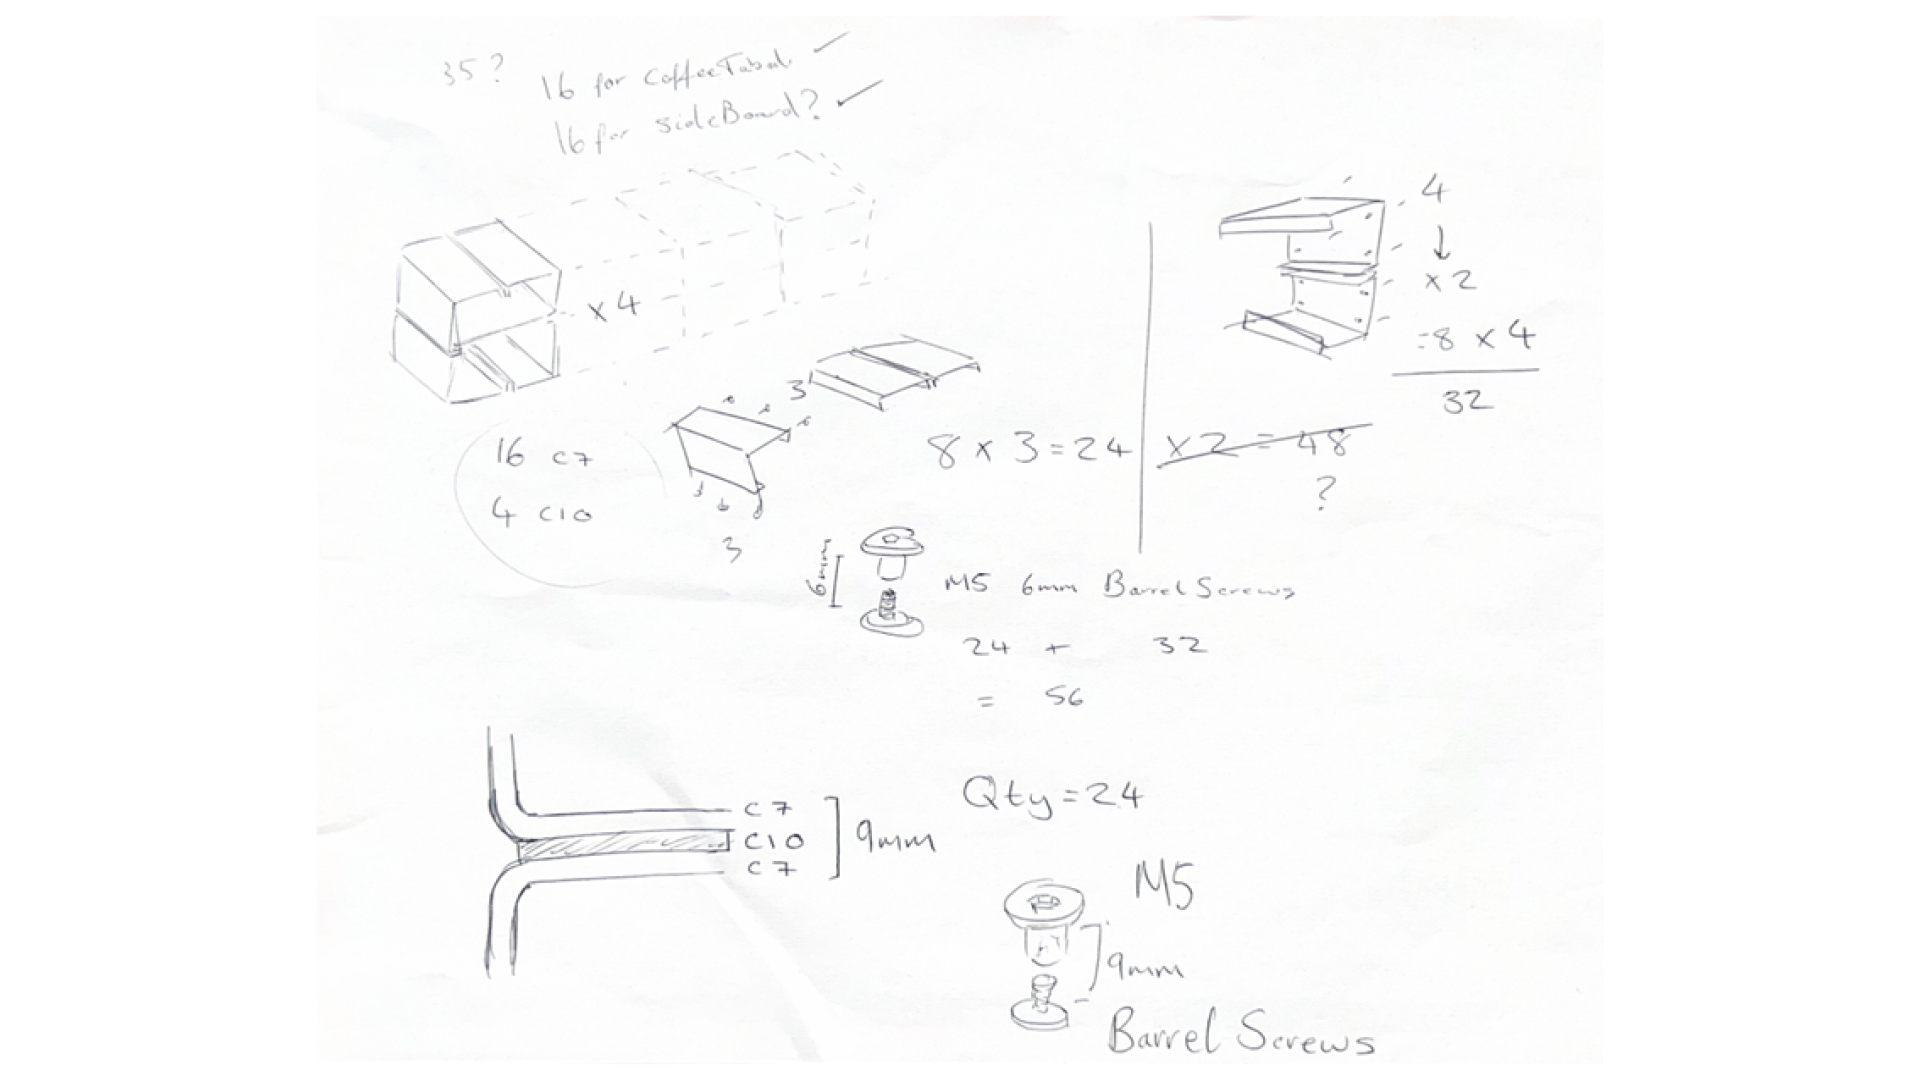 35?
16 for Coffee Tabel ✓
16 for SideBoard? ✓
x 4
16 C7
4 C10
3
3
8 x 3 = 24
x 2 = 48
?
4
↓
x 2
= 8 x 4
32
6mm
M5 6mm Barrel Screws
24 + 32
= 56
C7
C10
C7
9mm
Qty = 24
M5
9mm
Barrel Screws